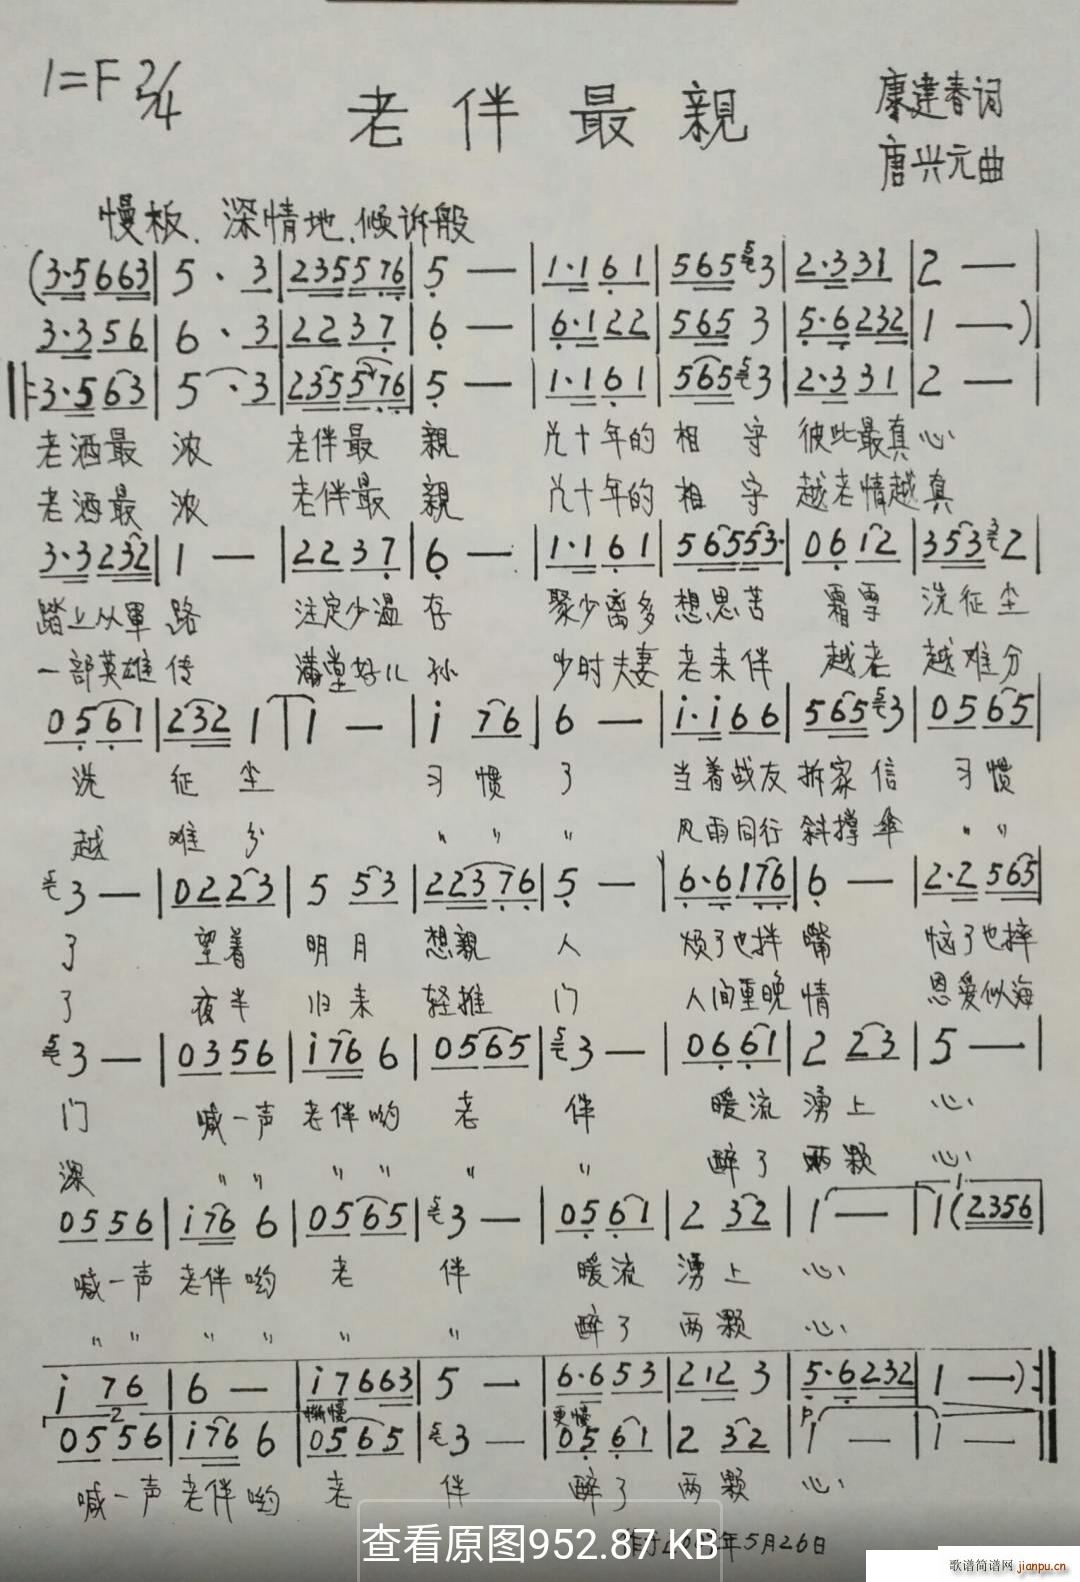 1=F 2/4
老伴最親
康建春词
唐兴元曲
慢板、深情地、倾诉般
(3·5 663 | 5 · 3 | 235 5 76 | 5 — | 1·1 6 1 | 565 3 | 2·3 31 | 2 —
3·3 56 | 6 · 3 | 22 37 | 6 — | 6·1 22 | 565 3 | 5·6 232 | 1 — )|
‖: 3·5 63 | 5 · 3 | 235 5 76 | 5 — | 1·1 61 | 565 3 | 2·3 31 | 2 —
老酒最 浓 老伴最 親 几十年的 相 守 彼此最真心
老酒最 浓 老伴最 親 几十年的 相 守 越老情越真
3·3 232 | 1 — | 22 37 | 6 — | 1·1 61 | 56 553· | 06 12 | 353 2 |
踏上从軍 路 注定少温 存 聚少离多 想思苦 霜雪 洗征尘
一部英雄 传 满堂好儿 孙 少时夫妻 老来伴 越老 越难分
05 61 | 232 1 | 1 — | i 76 | 6 — | i·i 66 | 565 3 | 05 65 |
洗 征 尘 习 惯 了 当着战友 拆家信 习惯
越 难 分 〃 〃 〃 风雨同行 斜撑伞 〃 〃
3 — | 02 23 | 5 53 | 223 76 | 5 — | 6·6 176 | 6 — | 2·2 565 |
了 望着 明月 想親 人 烦了也拌 嘴 恼了也摔
了 夜半 归来 轻推 门 人间重晚 情 恩爱似海
3 — | 03 56 | i76 6 | 05 65 | 3 — | 06 61 | 2 23 | 5 — |
门 喊一声 老伴哟 老 伴 暖流 湧上 心
深 〃 〃 〃 〃 〃 〃 醉了 两颗 心
05 56 | i76 6 | 05 65 | 3 — | 05 61 | 2 32 | 1 — | 1 (2356 |
1
喊一声 老伴哟 老 伴 暖流 湧上 心
〃 〃 〃 〃 〃 〃 醉了 两颗 心
i 76 | 6 — | i7 663 | 5 — | 6·6 53 | 212 3 | 5·6 232 | 1 — ) :‖
2 渐慢 更慢 p
05 56 | i76 6 | 05 65 | 3 — | 05 61 | 2 32 | 1 — | 1 — ‖
喊一声 老伴哟 老 伴 醉了 两颗 心
年5月26日
查看原图952.87 KB
歌谱简谱网 jianpu.cn